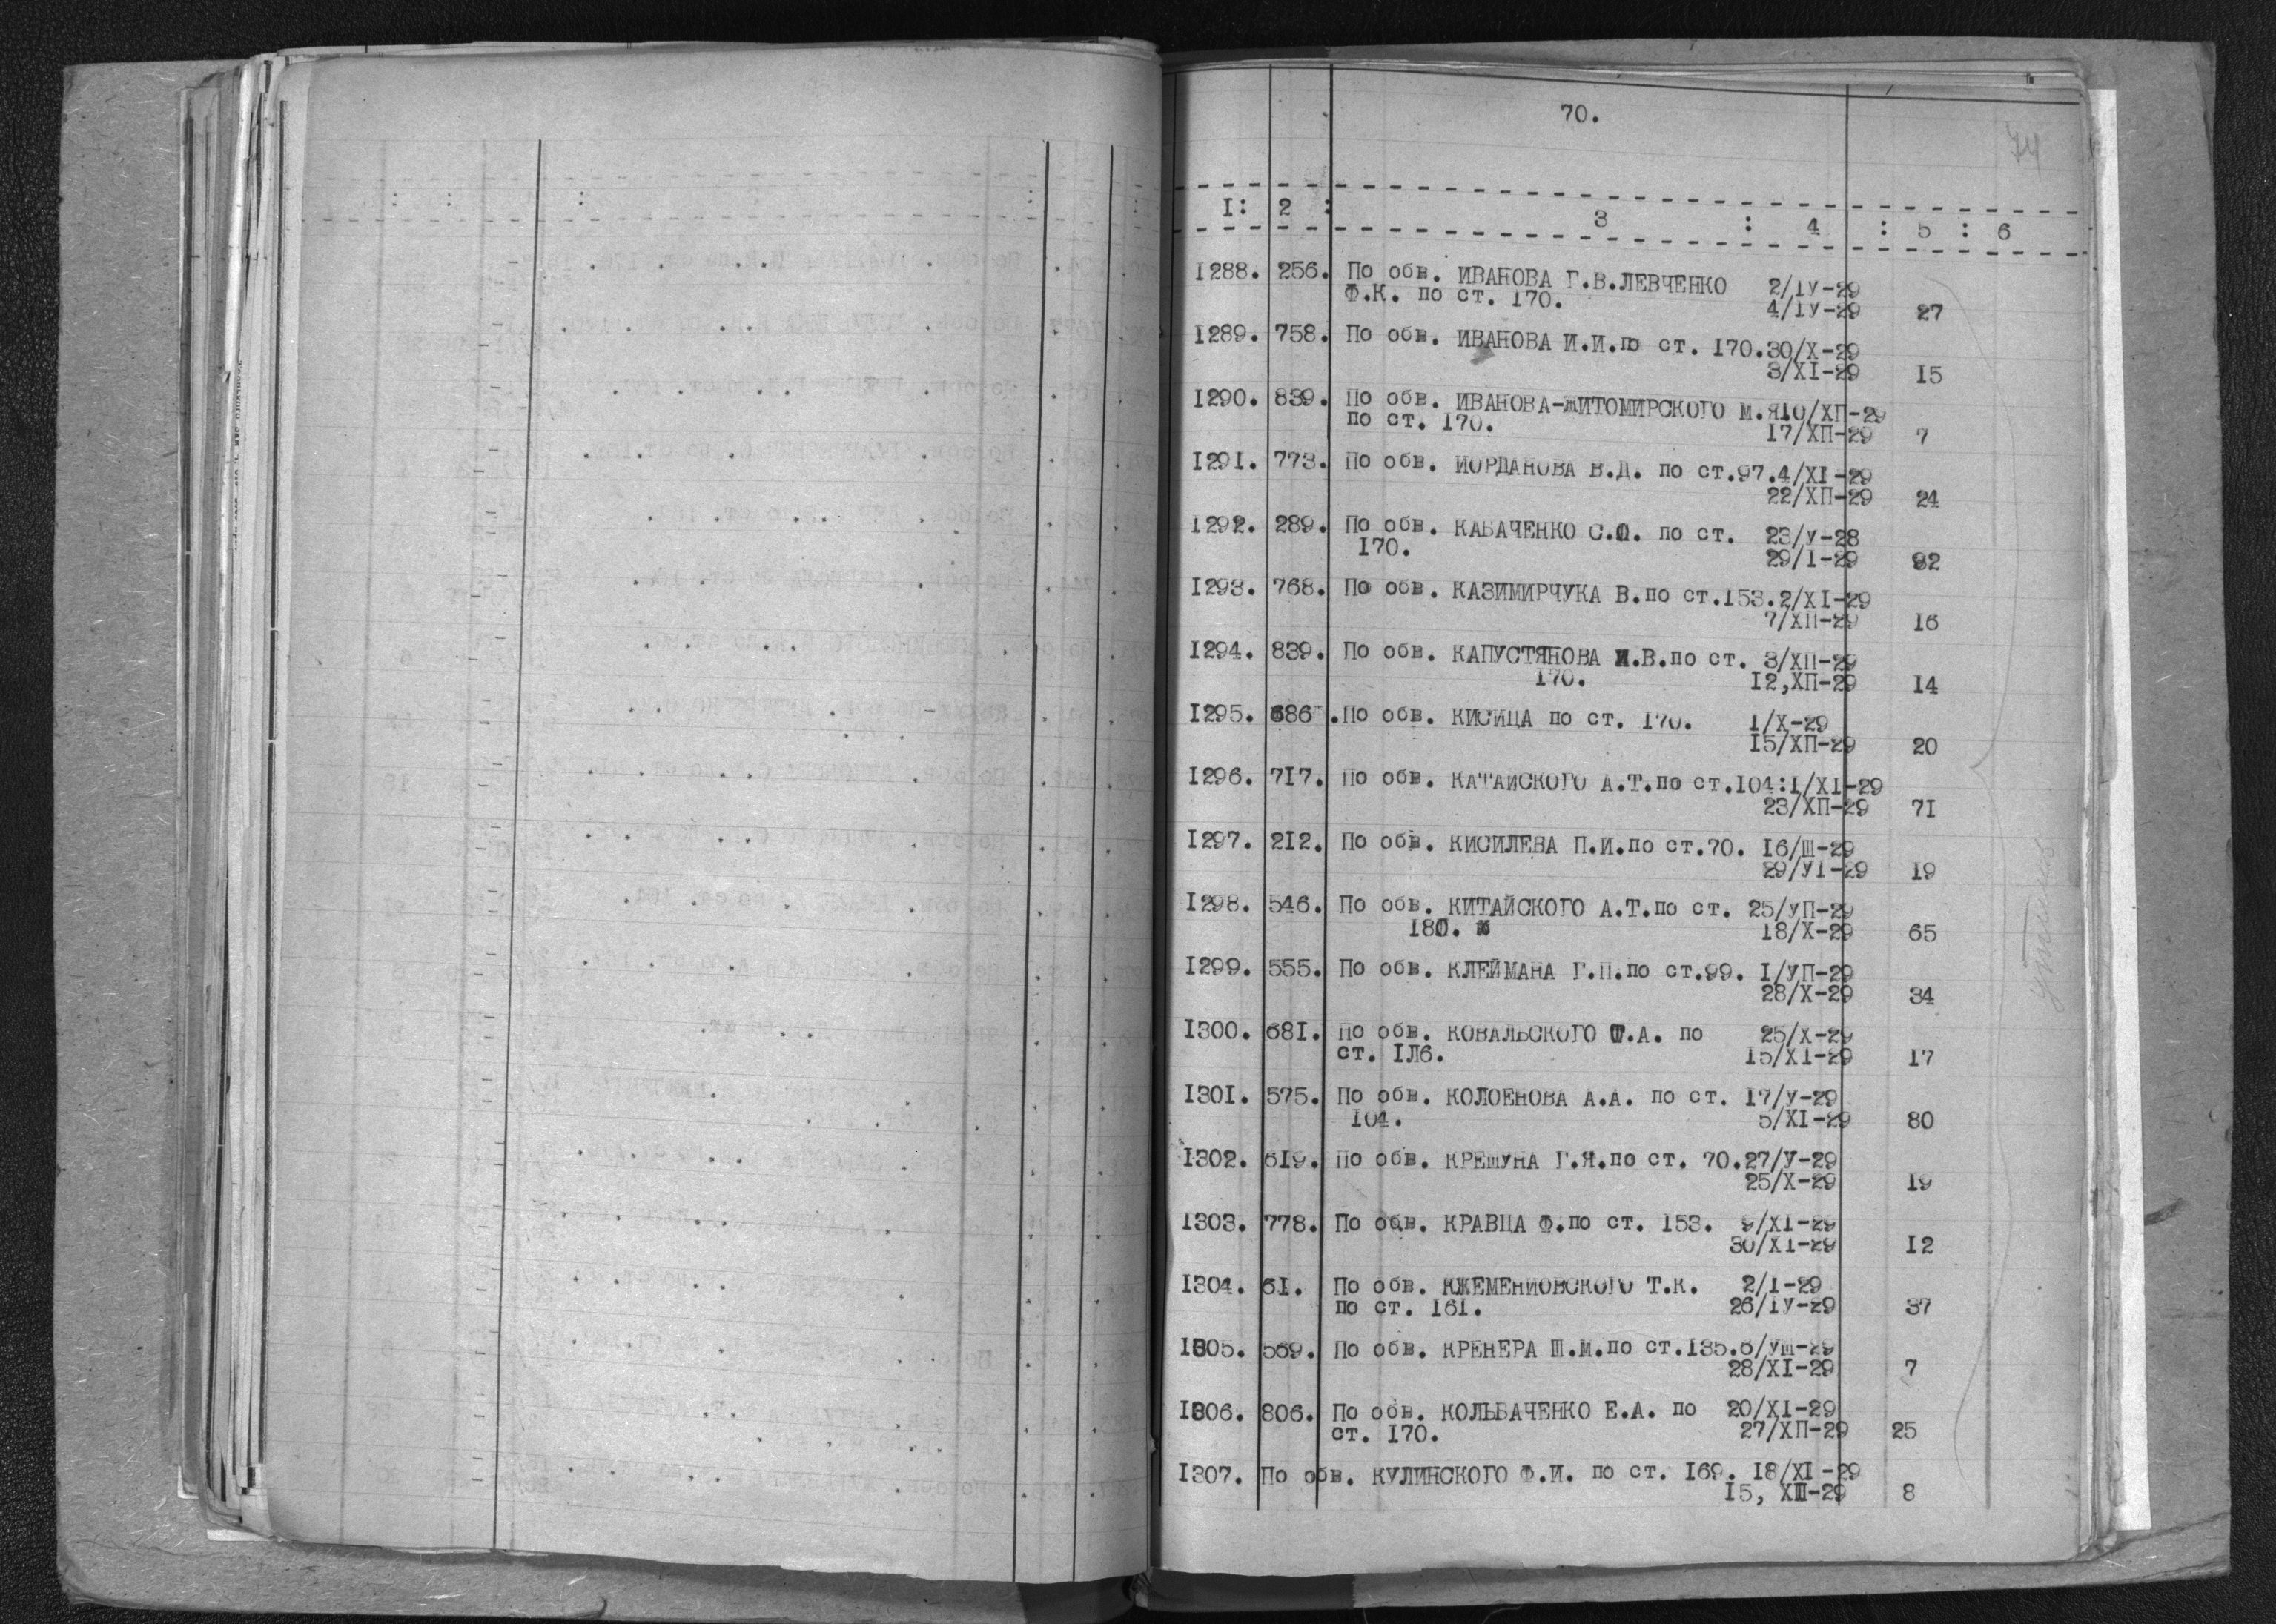 70.
74
I: 2 : 3 : 4 : 5 : 6
1288. 256. По обв. ИВАНОВА Г.В.ЛЕВЧЕНКО 2/IУ-29
Ф.К. по ст. 170. 4/IУ-29 27
1289. 758. По обв. ИВАНОВА И.И.по ст. 170.30/X-29
3/XI-29 15
1290. 839. По обв. ИВАНОВА-ЖИТОМИРСКОГО М.Я10/ХП-29
по ст. 170. 17/ХП-29 7
1291. 773. По обв. ИОРДАНОВА В.Д. по ст.97.4/XI-29
22/ХП-29 24
1292. 289. По обв. КАБАЧЕНКО С.О. по ст. 23/У-28
170. 29/I-29 82
1293. 768. По обв. КАЗИМИРЧУКА В.по ст.153.2/XI-29
7/ХП-29 16
1294. 839. По обв. КАПУСТЯНОВА И.В.по ст. 3/ХП-29
170. 12,ХП-29 14
1295. 686 .По обв. КИСИЦА по ст. 170. 1/X-29
15/ХП-29 20
1296. 717. По обв. КАТАЙСКОГО А.Т.по ст.104:1/XI-29
23/ХП-29 71
1297. 212. По обв. КИСИЛЕВА П.И.по ст.70. 16/Ш-29
29/УI-29 19
1298. 546. По обв. КИТАЙСКОГО А.Т.по ст. 25/УП-29
180. 18/X-29 65
1299. 555. По обв. КЛЕЙМАНА Г.П.по ст.99. 1/УП-29
28/X-29 34
1300. 681. По обв. КОВАЛЬСКОГО Ф.А. по 25/X-29
ст. 1Л6. 15/XI-29 17
1301. 575. По обв. КОЛОЕНОВА А.А. по ст. 17/У-29
104. 5/XI-29 80
1302. 619. По обв. КРЕШУНА Г.Я.по ст. 70.27/У-29
25/X-29 19
1303. 778. По обв. КРАВЦА Ф.по ст. 153. 9/XI-29
30/XI-29 12
1304. 61. По обв. КЖЕМЕНИОВСКОГО Т.К. 2/I-29
по ст. 161. 26/IУ-29 37
1305. 569. По обв. КРЕНЕРА Ш.М.по ст.135.6/УШ-29
28/XI-29 7
1306. 806. По обв. КОЛЬБАЧЕНКО Е.А. по 20/XI-29
ст. 170. 27/ХП-29 25
1307. По обв. КУЛИНСКОГО Ф.И. по ст. 169. 18/XI-29
15, ХП-29 8